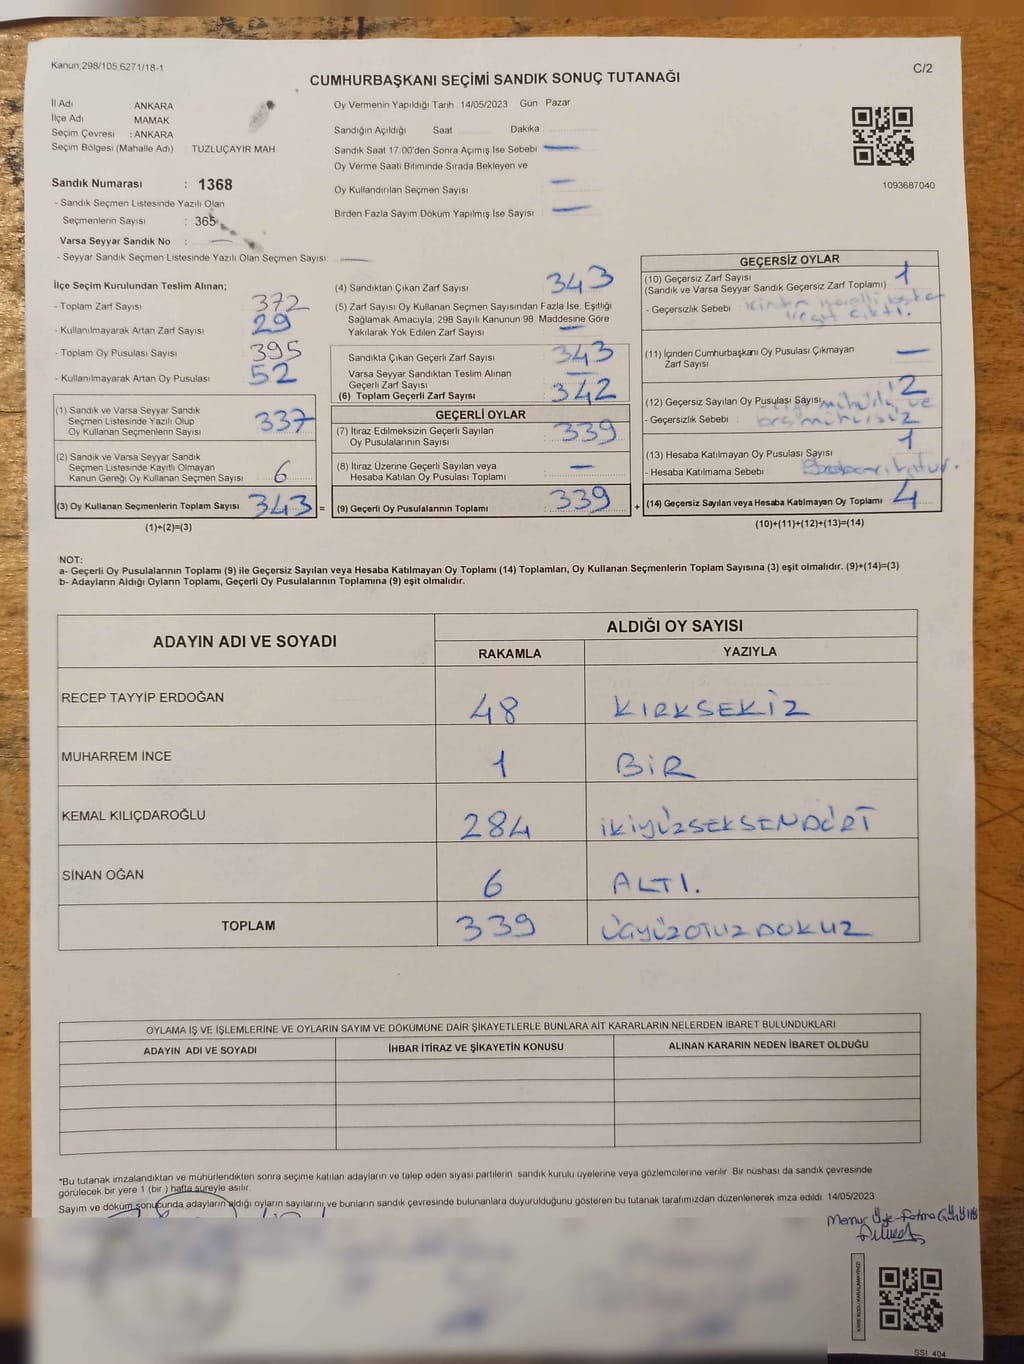 Kanun,298/105,6271/18-1
C/2
CUMHURBAŞKANI SEÇİMİ SANDIK SONUÇ TUTANAĞI
İl Adı ANKARA
İlçe Adı MAMAK
Seçim Çevresi : ANKARA
Seçim Bölgesi (Mahalle Adı) TUZLUÇAYIR MAH
Sandık Numarası : 1368
- Sandık Seçmen Listesinde Yazılı Olan
Seçmenlerin Sayısı : 365
Varsa Seyyar Sandık No : —
- Seyyar Sandık Seçmen Listesinde Yazılı Olan Seçmen Sayısı: —
Oy Vermenin Yapıldığı Tarih 14/05/2023 Gün Pazar
Sandığın Açıldığı Saat Dakika
Sandık Saat 17.00'den Sonra Açımış İse Sebebi —
Oy Verme Saati Bitiminde Sırada Bekleyen ve
Oy Kullandırılan Seçmen Sayısı —
Birden Fazla Sayım Döküm Yapılmış İse Sayısı —
1093687040
İlçe Seçim Kurulundan Teslim Alınan;
- Toplam Zarf Sayısı 372
- Kullanılmayarak Artan Zarf Sayısı 29
- Toplam Oy Pusulası Sayısı 395
- Kullanılmayarak Artan Oy Pusulası 52
(1) Sandık ve Varsa Seyyar Sandık
Seçmen Listesinde Yazılı Olup
Oy Kullanan Seçmenlerin Sayısı 337
(2) Sandık ve Varsa Seyyar Sandık
Seçmen Listesinde Kayıtlı Olmayan
Kanun Gereği Oy Kullanan Seçmen Sayısı 6
(3) Oy Kullanan Seçmenlerin Toplam Sayısı 343 =
(1)+(2)=(3)
(4) Sandıktan Çıkan Zarf Sayısı 343
(5) Zarf Sayısı Oy Kullanan Seçmen Sayısından Fazla İse, Eşitliği
Sağlamak Amacıyla, 298 Sayılı Kanunun 98 Maddesine Göre
Yakılarak Yok Edilen Zarf Sayısı —
Sandıkta Çıkan Geçerli Zarf Sayısı 343
Varsa Seyyar Sandıktan Teslim Alınan
Geçerli Zarf Sayısı —
(6) Toplam Geçerli Zarf Sayısı 342
GEÇERLİ OYLAR
(7) İtiraz Edilmeksizin Geçerli Sayılan
Oy Pusulalarının Sayısı 339
(8) İtiraz Üzerine Geçerli Sayılan veya
Hesaba Katılan Oy Pusulası Toplamı —
(9) Geçerli Oy Pusulalarının Toplamı 339 +
GEÇERSİZ OYLAR
(10) Geçersiz Zarf Sayısı 1
(Sandık ve Varsa Seyyar Sandık Geçersiz Zarf Toplamı)
- Geçersizlik Sebebi
çıktı.
(11) İçinden Cumhurbaşkanı Oy Pusulası Çıkmayan
Zarf Sayısı —
(12) Geçersiz Sayılan Oy Pusulası Sayısı 2
- Geçersizlik Sebebi ve
(13) Hesaba Katılmayan Oy Pusulası Sayısı 1
- Hesaba Katılmama Sebebi
(14) Geçersiz Sayılan veya Hesaba Katılmayan Oy Toplamı 4
(10)+(11)+(12)+(13)=(14)
NOT:
a- Geçerli Oy Pusulalarının Toplamı (9) ile Geçersiz Sayılan veya Hesaba Katılmayan Oy Toplamı (14) Toplamları, Oy Kullanan Seçmenlerin Toplam Sayısına (3) eşit olmalıdır. (9)+(14)=(3)
b- Adayların Aldığı Oyların Toplamı, Geçerli Oy Pusulalarının Toplamına (9) eşit olmalıdır.
ADAYIN ADI VE SOYADI
ALDIĞI OY SAYISI
RAKAMLA YAZIYLA
RECEP TAYYİP ERDOĞAN 48 KIRKSEKİZ
MUHARREM İNCE 1 BİR
KEMAL KILIÇDAROĞLU 284 İKİYÜZSEKSENDÖRT
SİNAN OĞAN 6 ALTI.
TOPLAM 339 ÜÇYÜZOTUZDOKUZ
OYLAMA İŞ VE İŞLEMLERİNE VE OYLARIN SAYIM VE DÖKÜMÜNE DAİR ŞİKAYETLERLE BUNLARA AİT KARARLARIN NELERDEN İBARET BULUNDUKLARI
ADAYIN ADI VE SOYADI İHBAR İTİRAZ VE ŞİKAYETİN KONUSU ALINAN KARARIN NEDEN İBARET OLDUĞU
*Bu tutanak imzalandıktan ve mühürlendikten sonra seçime katılan adayların ve talep eden siyasi partilerin sandık kurulu üyelerine veya gözlemcilerine verilir Bir nüshası da sandık çevresinde
görülecek bir yere 1 (bir ) hafta süreyle asılır.
Sayım ve döküm sonucunda adayların aldığı oyların sayılarını ve bunların sandık çevresinde bulunanlara duyurulduğunu gösteren bu tutanak tarafımızdan düzenlenerek imza edildi. 14/05/2023
Memur Üye - Fatma
SSİ 404